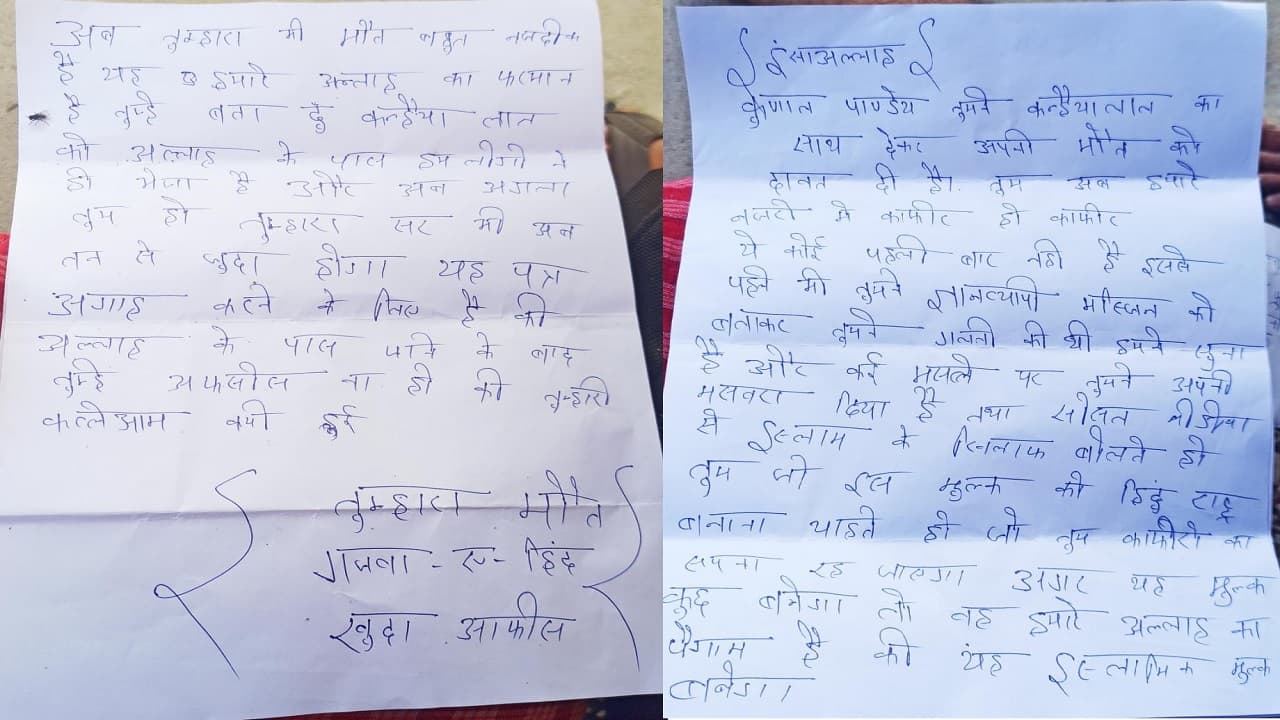 अब तुम्हारा भी मौत बहुत नजदीक
है यह हमारे अल्लाह का फरमान
है तुम्हे बता दुं कन्हैया लाल
को अल्लाह के पास हम लोगो ने
ही भेजा है और अब अगला
तुम हो तुम्हारा सर भी अब
तन से जुदा होगा यह पत्र
अगाह करने के लिए है की
अल्लाह के पास जाने के बाद
तुम्हे अफसोस ना हो की तुम्हारी
कत्लेआम क्यो हुई
तुम्हारा मौत
गजवा-ए-हिंद
खुदा आफीस
इंसाअल्लाह
कुणाल पाण्डेय तुमने कन्हैयालाल का
साथ देकर अपनी मौत को
दावत दी है। तुम अब हमारे
नजरो मे काफीर हो काफीर
ये कोई पहली बार नही है इससे
पहले भी तुमने ज्ञानव्यापी मस्जिद को
बताकर तुमने गलती की थी हमने सुना
है और कई मसले पर तुमने अपनी
मसवरा दिया है तथा सोसल मीडीया
से इस्लाम के खिलाफ बोलते हो
तुम जो इस मुल्क को हिंदु राष्ट्र
बनाना चाहते हो जो तुम काफीरो का
सपना रह जाएगा अगर यह मुल्क
कुछ बनेगा तो वह हमारे अल्लाह का
पैगाम है की यह इस्लामिक मुल्क
बनेगा।